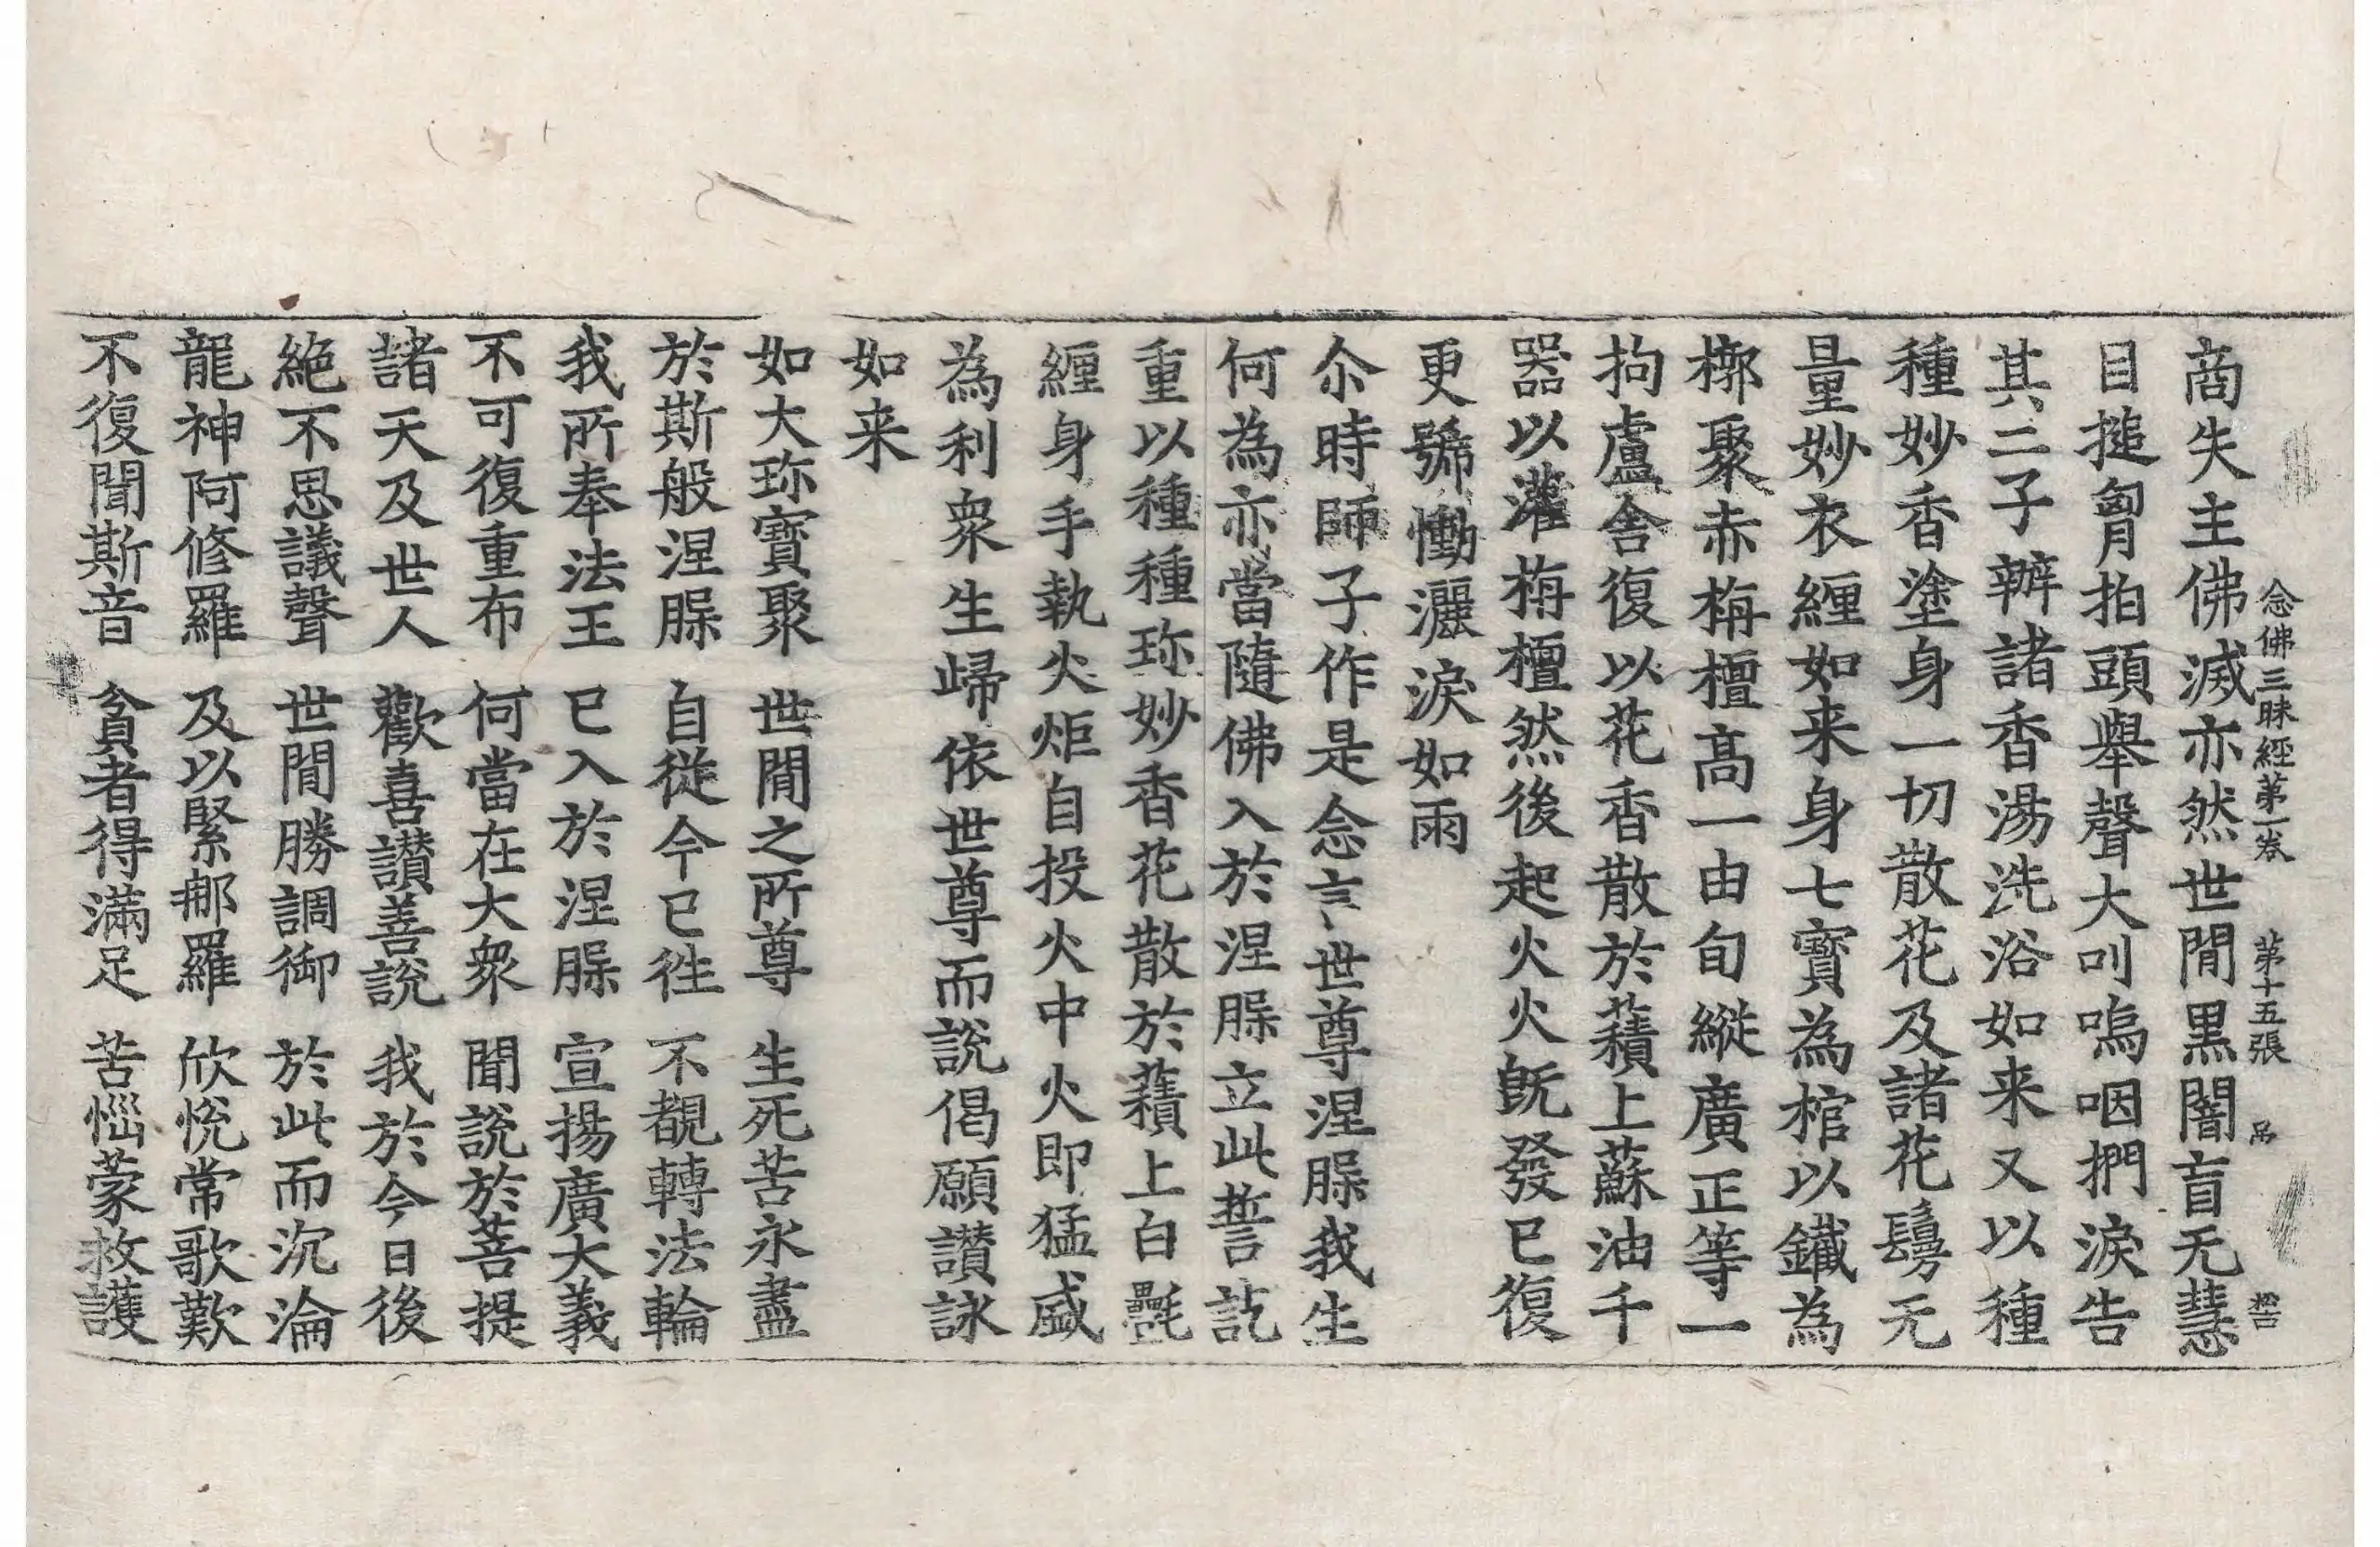 念佛三昧經第一卷 第十五張 吊
商失主佛滅亦然世間黑闇盲无慧
目搥胷拍頭舉聲大叫嗚咽捫淚告
其二子辦諸香湯洗浴如来又以種
種妙香塗身一切散花及諸花鬘无
量妙衣纏如来身七寶為棺以鐵為
槨聚赤栴檀高一由旬縱廣正等一
拘盧舍復以花香散於𧂐上蘇油千
器以灌栴檀然後起火火旣發已復
更號慟灑淚如雨
尒時師子作是念言世尊涅槃我生
何為亦當隨佛入於涅槃立此誓訖
重以種種珎妙香花散於𧂐上白㲲
纏身手執火炬自投火中火即猛盛
為利衆生歸依世尊而說偈願讃詠
如来
如大珎寶聚 世間之所尊 生死苦永盡
於斯般涅槃 自從今已徃 不覩轉法輪
我所奉法王 已入於涅槃 宣揚廣大義
不可復重布 何當在大衆 聞說於菩提
諸天及世人 歡喜讃善說 我於今日後
絕不思議聲 世間勝調御 於此而沉淪
龍神阿修羅 及以緊那羅 欣悅常歌歎
不復聞斯音 貧者得滿足 苦惱蒙救護